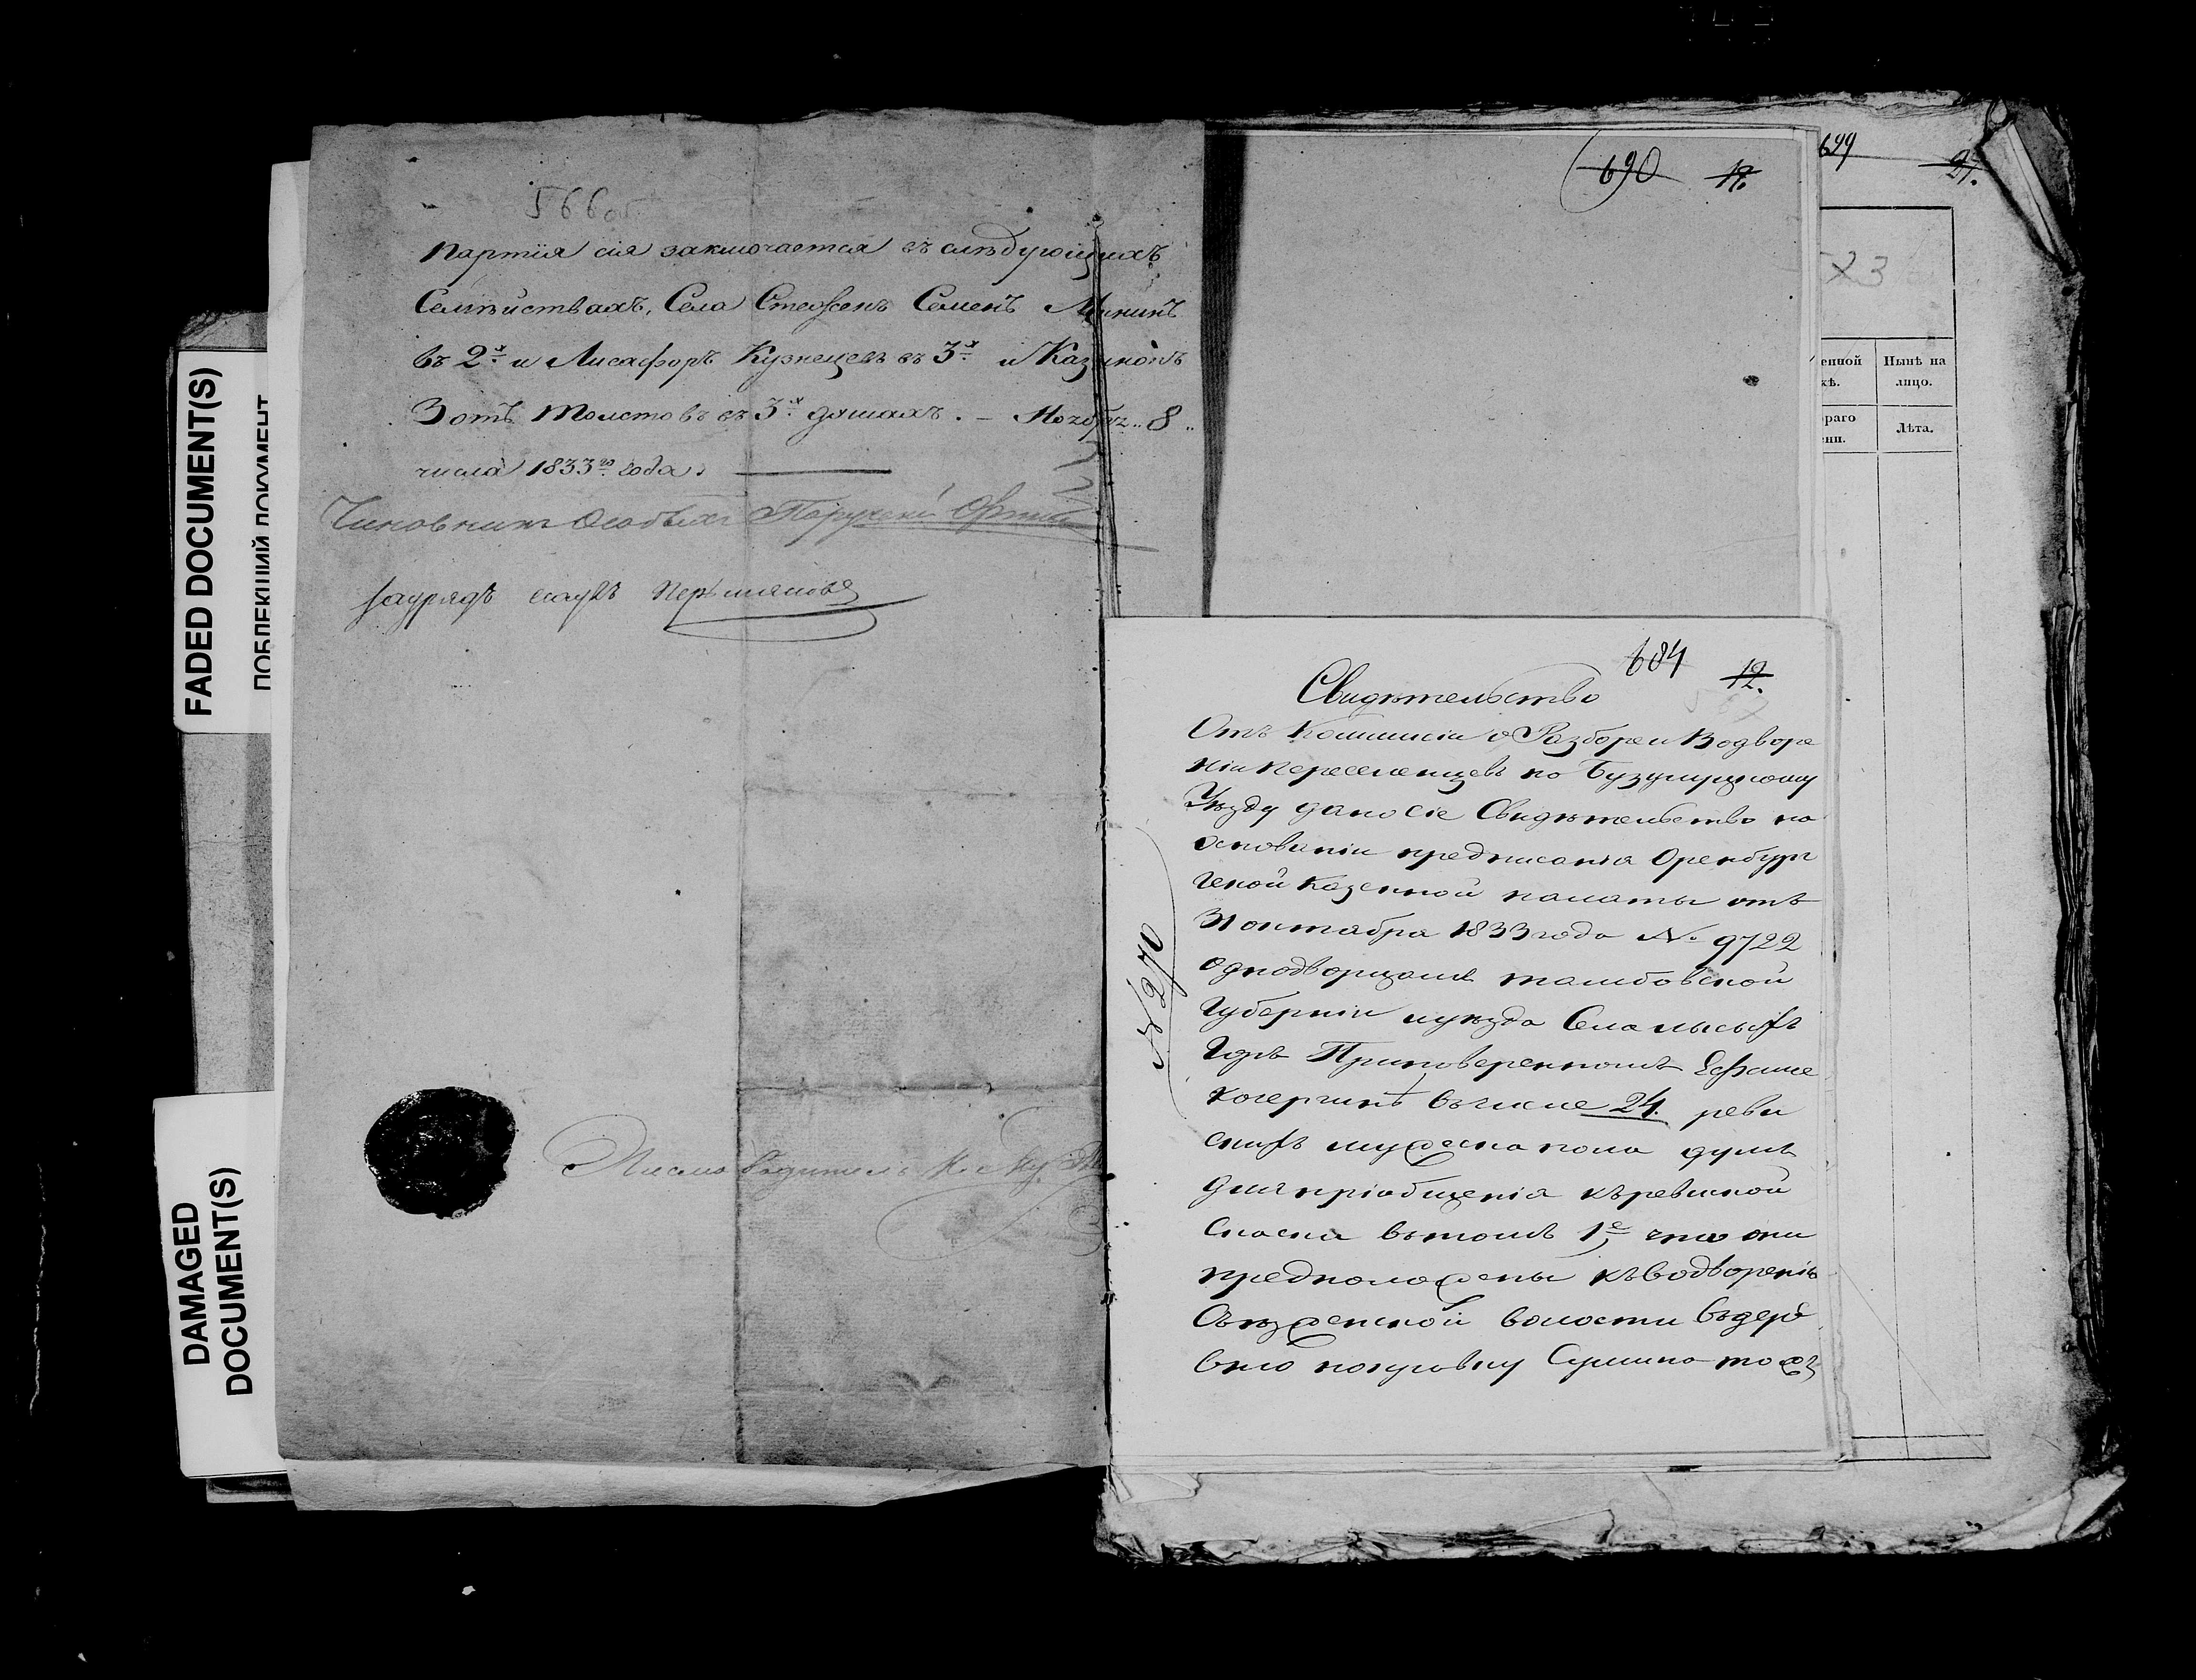 566об
партія сія заключается въ слѣдующихъ
Семѣйствахъ, Села Стеженъ Семенъ Мининъ
въ 2х и Лисафоръ Кузнецовъ въ 3х и Казинокъ
Зотъ Толстовъ въ 3х душахъ. – Ноября 8
числа 1833го года.
Чиновникъ Особыхъ Порученій
зауряд есаулъ
Письмоводитель
FADED DOCUMENT(S)
ПОБЛЕКШИЙ ДОКУМЕНТ
DAMAGED
DOCUMENT(S)
690 19.
699 21.
523
енной Нынѣ на
кѣ. лицо.
ораго Лѣта.
ени.
684 12.
567
Свидѣтельство
Отъ Коммисіи о Разборе и Водворе
ніи переселенцевъ по Бузулуцкому
Уѣзду дано сіе Свидѣтельство на
основаніи предписанія Оренбург
ской казенной палаты отъ
31 октября 1833 года № 9722
однодворцамъ тамбовской
Губерніи и уѣзда Села Лысыхъ
Горъ При поверенномъ Ефиме
Кочергинѣ въ числе 24. реви
скихъ мужеска пола душъ
для пріобщенія къ ревиской
Сказки въ томъ 1е что они
предположены къ водворенію
Съезженской волости въ дере
вню покровку Сумино тожъ
№ 270